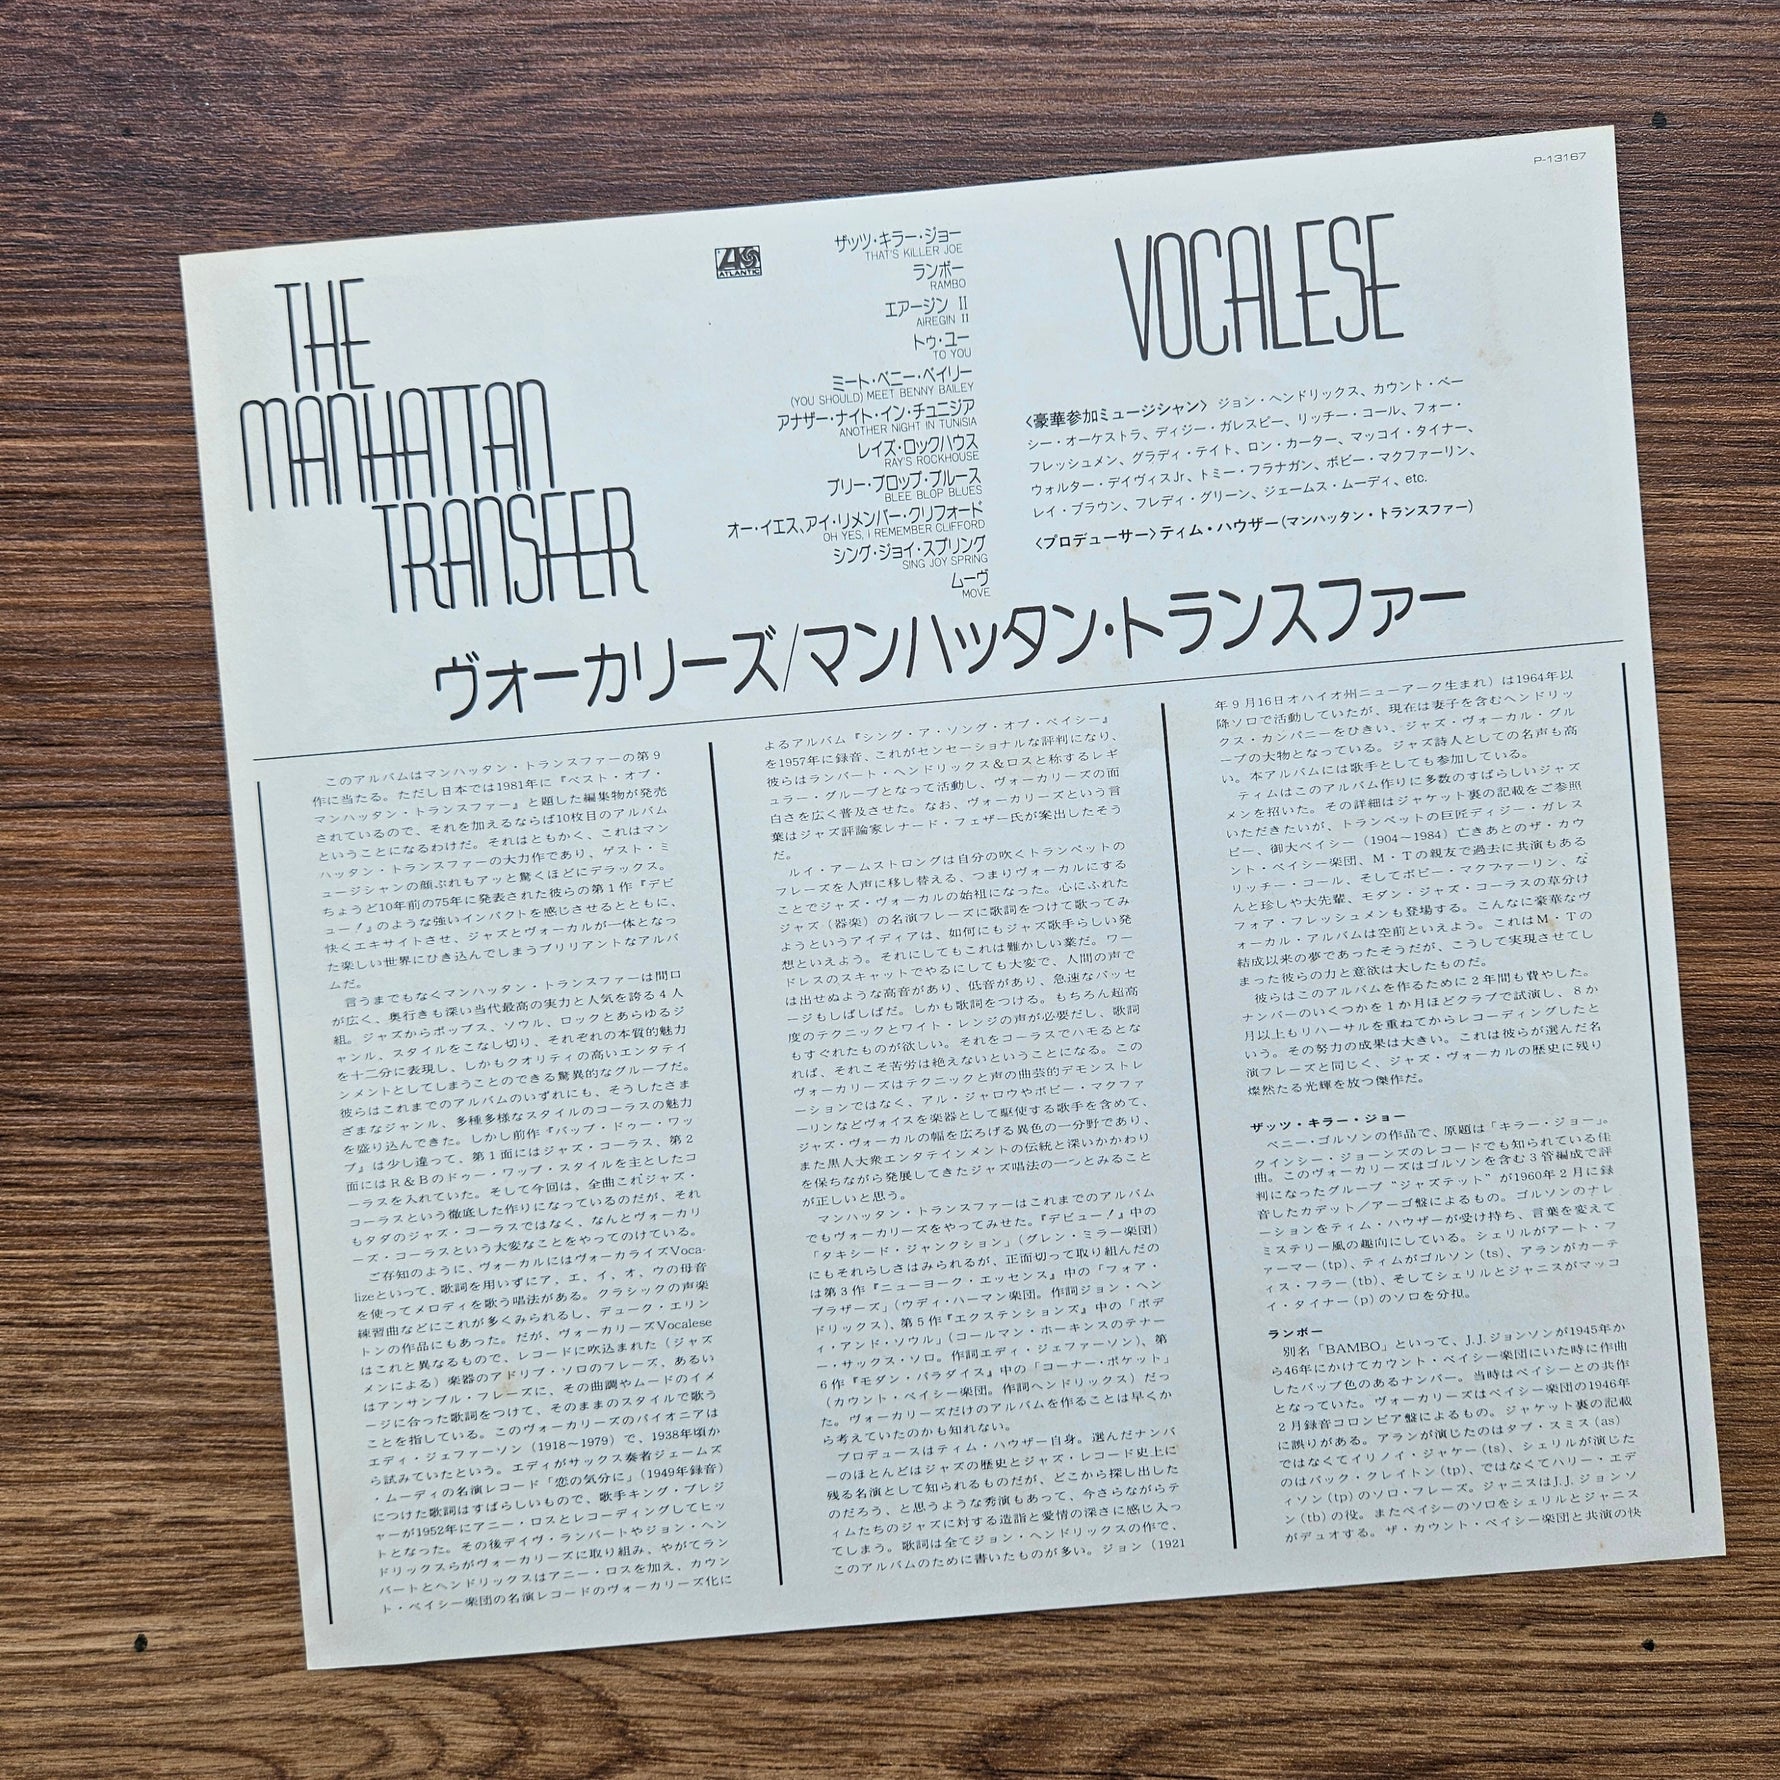 P-13167
THE
MANHATTAN
TRANSFER
ATLANTIC
ザッツ・キラー・ジョー
THAT'S KILLER JOE
ランボー
RAMBO
エアージン II
AIREGIN II
トゥ・ユー
TO YOU
ミート・ベニー・ベイリー
(YOU SHOULD) MEET BENNY BAILEY
アナザー・ナイト・イン・チュニジア
ANOTHER NIGHT IN TUNISIA
レイズ・ロックハウス
RAY'S ROCKHOUSE
ブリー・ブロップ・ブルース
BLEE BLOP BLUES
オー・イエス、アイ・リメンバー・クリフォード
OH YES, I REMEMBER CLIFFORD
シング・ジョイ・スプリング
SING JOY SPRING
ムーヴ
MOVE
VOCALESE
〈豪華参加ミュージシャン〉 ジョン・ヘンドリックス、カウント・ベー
シー・オーケストラ、ディジー・ガレスピー、リッチー・コール、フォー・
フレッシュメン、グラディ・テイト、ロン・カーター、マッコイ・タイナー、
ウォルター・デイヴィスJr、トミー・フラナガン、ボビー・マクファーリン、
レイ・ブラウン、フレディ・グリーン、ジェームス・ムーディ、etc.
〈プロデューサー〉ティム・ハウザー(マンハッタン・トランスファー)
ヴォーカリーズ/マンハッタン・トランスファー
このアルバムはマンハッタン・トランスファーの第9
作に当たる。ただし日本では1981年に『ベスト・オブ・
マンハッタン・トランスファー』と題した編集物が発売
されているので、それを加えるならば10枚目のアルバム
ということになるわけだ。それはともかく、これはマン
ハッタン・トランスファーの大力作であり、ゲスト・ミ
ュージシャンの顔ぶれもアッと驚くほどにデラックス。
ちょうど10年前の75年に発表された彼らの第1作『デビ
ュー!』のような強いインパクトを感じさせるとともに、
快くエキサイトさせ、ジャズとヴォーカルが一体となっ
た楽しい世界にひき込んでしまうブリリアントなアルバ
ムだ。
言うまでもなくマンハッタン・トランスファーは間口
が広く、奥行きも深い当代最高の実力と人気を誇る4人
組。ジャズからポップス、ソウル、ロックとあらゆるジ
ャンル、スタイルをこなし切り、それぞれの本質的魅力
を十二分に表現し、しかもクオリティの高いエンタテイ
ンメントとしてしまうことのできる驚異的なグループだ。
彼らはこれまでのアルバムのいずれにも、そうしたさま
ざまなジャンル、多種多様なスタイルのコーラスの魅力
を盛り込んできた。しかし前作『バップ・ドゥー・ワッ
プ』は少し違って、第1面にはジャズ・コーラス、第2
面にはR&Bのドゥー・ワップ・スタイルを主としたコ
ーラスを入れていた。そして今回は、全曲これジャズ・
コーラスという徹底した作りになっているのだが、それ
もタダのジャズ・コーラスではなく、なんとヴォーカリ
ーズ・コーラスという大変なことをやってのけている。
ご存知のように、ヴォーカルにはヴォーカライズVoca-
lizeといって、歌詞を用いずにア、エ、イ、オ、ウの母音
を使ってメロディを歌う唱法がある。クラシックの声楽
練習曲などにこれが多くみられるし、デューク・エリン
トンの作品にもあった。だが、ヴォーカリーズVocalese
はこれと異なるもので、レコードに吹込まれた(ジャズ
メンによる)楽器のアドリブ・ソロのフレーズ、あるい
はアンサンブル・フレーズに、その曲調やムードのイメ
ージに合った歌詞をつけて、そのままのスタイルで歌う
ことを指している。このヴォーカリーズのパイオニアは
エディ・ジェファーソン(1918〜1979)で、1938年頃か
ら試みていたという。エディがサックス奏者ジェームズ
・ムーディの名演レコード「恋の気分に」(1949年録音)
につけた歌詞はすばらしいもので、歌手キング・プレジ
ャーが1952年にアニー・ロスとレコーディングしてヒッ
トとなった。その後デイヴ・ランバートやジョン・ヘン
ドリックスらがヴォーカリーズに取り組み、やがてラン
バートとヘンドリックスはアニー・ロスを加え、カウン
ト・ベイシー楽団の名演レコードのヴォーカリーズ化に
よるアルバム『シング・ア・ソング・オブ・ベイシー』
を1957年に録音、これがセンセーショナルな評判になり、
彼らはランバート・ヘンドリックス&ロスと称するレギ
ュラー・グループとなって活動し、ヴォーカリーズの面
白さを広く普及させた。なお、ヴォーカリーズという言
葉はジャズ評論家レナード・フェザー氏が案出したそう
だ。
ルイ・アームストロングは自分の吹くトランペットの
フレーズを人声に移し替える、つまりヴォーカルにする
ことでジャズ・ヴォーカルの始祖になった。心にふれた
ジャズ(器楽)の名演フレーズに歌詞をつけて歌ってみ
ようというアイディアは、如何にもジャズ歌手らしい発
想といえよう。それにしてもこれは難かしい業だ。ワー
ドレスのスキャットでやるにしても大変で、人間の声で
は出せぬような高音があり、低音があり、急速なパッセ
ージもしばしばだ。しかも歌詞をつける。もちろん超高
度のテクニックとワイト・レンジの声が必要だし、歌詞
もすぐれたものが欲しい。それをコーラスでハモるとな
れば、それこそ苦労は絶えないということになる。この
ヴォーカリーズはテクニックと声の曲芸的デモンストレ
ーションではなく、アル・ジャロウやボビー・マクファ
ーリンなどヴォイスを楽器として駆使する歌手を含めて、
ジャズ・ヴォーカルの幅を広ろげる異色の一分野であり、
また黒人大衆エンタテインメントの伝統と深いかかわり
を保ちながら発展してきたジャズ唱法の一つとみること
が正しいと思う。
マンハッタン・トランスファーはこれまでのアルバム
でもヴォーカリーズをやってみせた。『デビュー!』中の
「タキシード・ジャンクション」(グレン・ミラー楽団)
にもそれらしさはみられるが、正面切って取り組んだの
は第3作『ニューヨーク・エッセンス』中の「フォア・
ブラザーズ」(ウディ・ハーマン楽団。作詞ジョン・ヘン
ドリックス)、第5作『エクステンションズ』中の「ボデ
ィ・アンド・ソウル」(コールマン・ホーキンスのテナー
ー・サックス・ソロ。作詞エディ・ジェファーソン)、第
6作『モダン・パラダイス』中の「コーナー・ポケット」
(カウント・ベイシー楽団。作詞ヘンドリックス)だっ
た。ヴォーカリーズだけのアルバムを作ることは早くか
ら考えていたのかも知れない。
プロデュースはティム・ハウザー自身。選んだナンバ
ーのほとんどはジャズの歴史とジャズ・レコード史上に
残る名演として知られるものだが、どこから探し出した
のだろう、と思うような秀演もあって、今さらながらテ
ィムたちのジャズに対する造詣と愛情の深さに感じ入っ
てしまう。歌詞は全てジョン・ヘンドリックスの作で、
このアルバムのために書いたものが多い。ジョン(1921
年9月16日オハイオ州ニューアーク生まれ)は1964年以
降ソロで活動していたが、現在は妻子を含むヘンドリッ
クス・カンパニーをひきい、ジャズ・ヴォーカル・グル
ープの大物となっている。ジャズ詩人としての名声も高
い。本アルバムには歌手としても参加している。
ティムはこのアルバム作りに多数のすばらしいジャズ
メンを招いた。その詳細はジャケット裏の記載をご参照
いただきたいが、トランペットの巨匠ディジー・ガレス
ピー、御大ベイシー(1904〜1984)亡きあとのザ・カウ
ント・ベイシー楽団、M・Tの親友で過去に共演もある
リッチー・コール、そしてボビー・マクファーリン、な
んと珍しや大先輩、モダン・ジャズ・コーラスの草分け
フォア・フレッシュメンも登場する。こんなに豪華なヴ
ォーカル・アルバムは空前といえよう。これはM・Tの
結成以来の夢であったそうだが、こうして実現させてし
まった彼らの力と意欲は大したものだ。
彼らはこのアルバムを作るために2年間も費やした。
ナンバーのいくつかを1か月ほどクラブで試演し、8か
月以上もリハーサルを重ねてからレコーディングしたと
いう。その努力の成果は大きい。これは彼らが選んだ名
演フレーズと同じく、ジャズ・ヴォーカルの歴史に残り
燦然たる光輝を放つ傑作だ。
ザッツ・キラー・ジョー
ベニー・ゴルソンの作品で、原題は「キラー・ジョー」。
クインシー・ジョーンズのレコードでも知られている佳
曲。このヴォーカリーズはゴルソンを含む3管編成で評
判になったグループ"ジャズテット"が1960年2月に録
音したカデット/アーゴ盤によるもの。ゴルソンのナレ
ーションをティム・ハウザーが受け持ち、言葉を変えて
ミステリー風の趣向にしている。シェリルがアート・フ
ァーマー(tp)、ティムがゴルソン(ts)、アランがカーテ
ィス・フラー(tb)、そしてシェリルとジャニスがマッコ
イ・タイナー(p)のソロを分担。
ランボー
別名「BAMBO」といって、J.J.ジョンソンが1945年か
ら46年にかけてカウント・ベイシー楽団にいた時に作曲
したバップ色のあるナンバー。当時はベイシーとの共作
となっていた。ヴォーカリーズはベイシー楽団の1946年
2月録音コロンビア盤によるもの。ジャケット裏の記載
に誤りがある。アランが演じたのはタブ・スミス(as)
ではなくてイリノイ・ジャケー(ts)、シェリルが演じた
のはバック・クレイトン(tp)、ではなくてハリー・エデ
ィソン(tp)のソロ・フレーズ。ジャニスはJ.J.ジョンソ
ン(tb)の役。またベイシーのソロをシェリルとジャニス
がデュオする。ザ・カウント・ベイシー楽団と共演の快